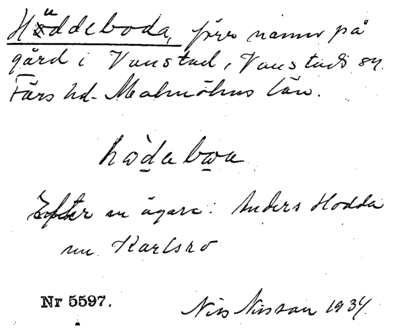 Hüddeboda, förr namn på
gård i Vanstad, Vanstads sn.
Färs hd. Malmöhus län.
Efter en ägare: Anders Hodda
nu Karlsro
Nr 5597.
Nils Nilsson 1934